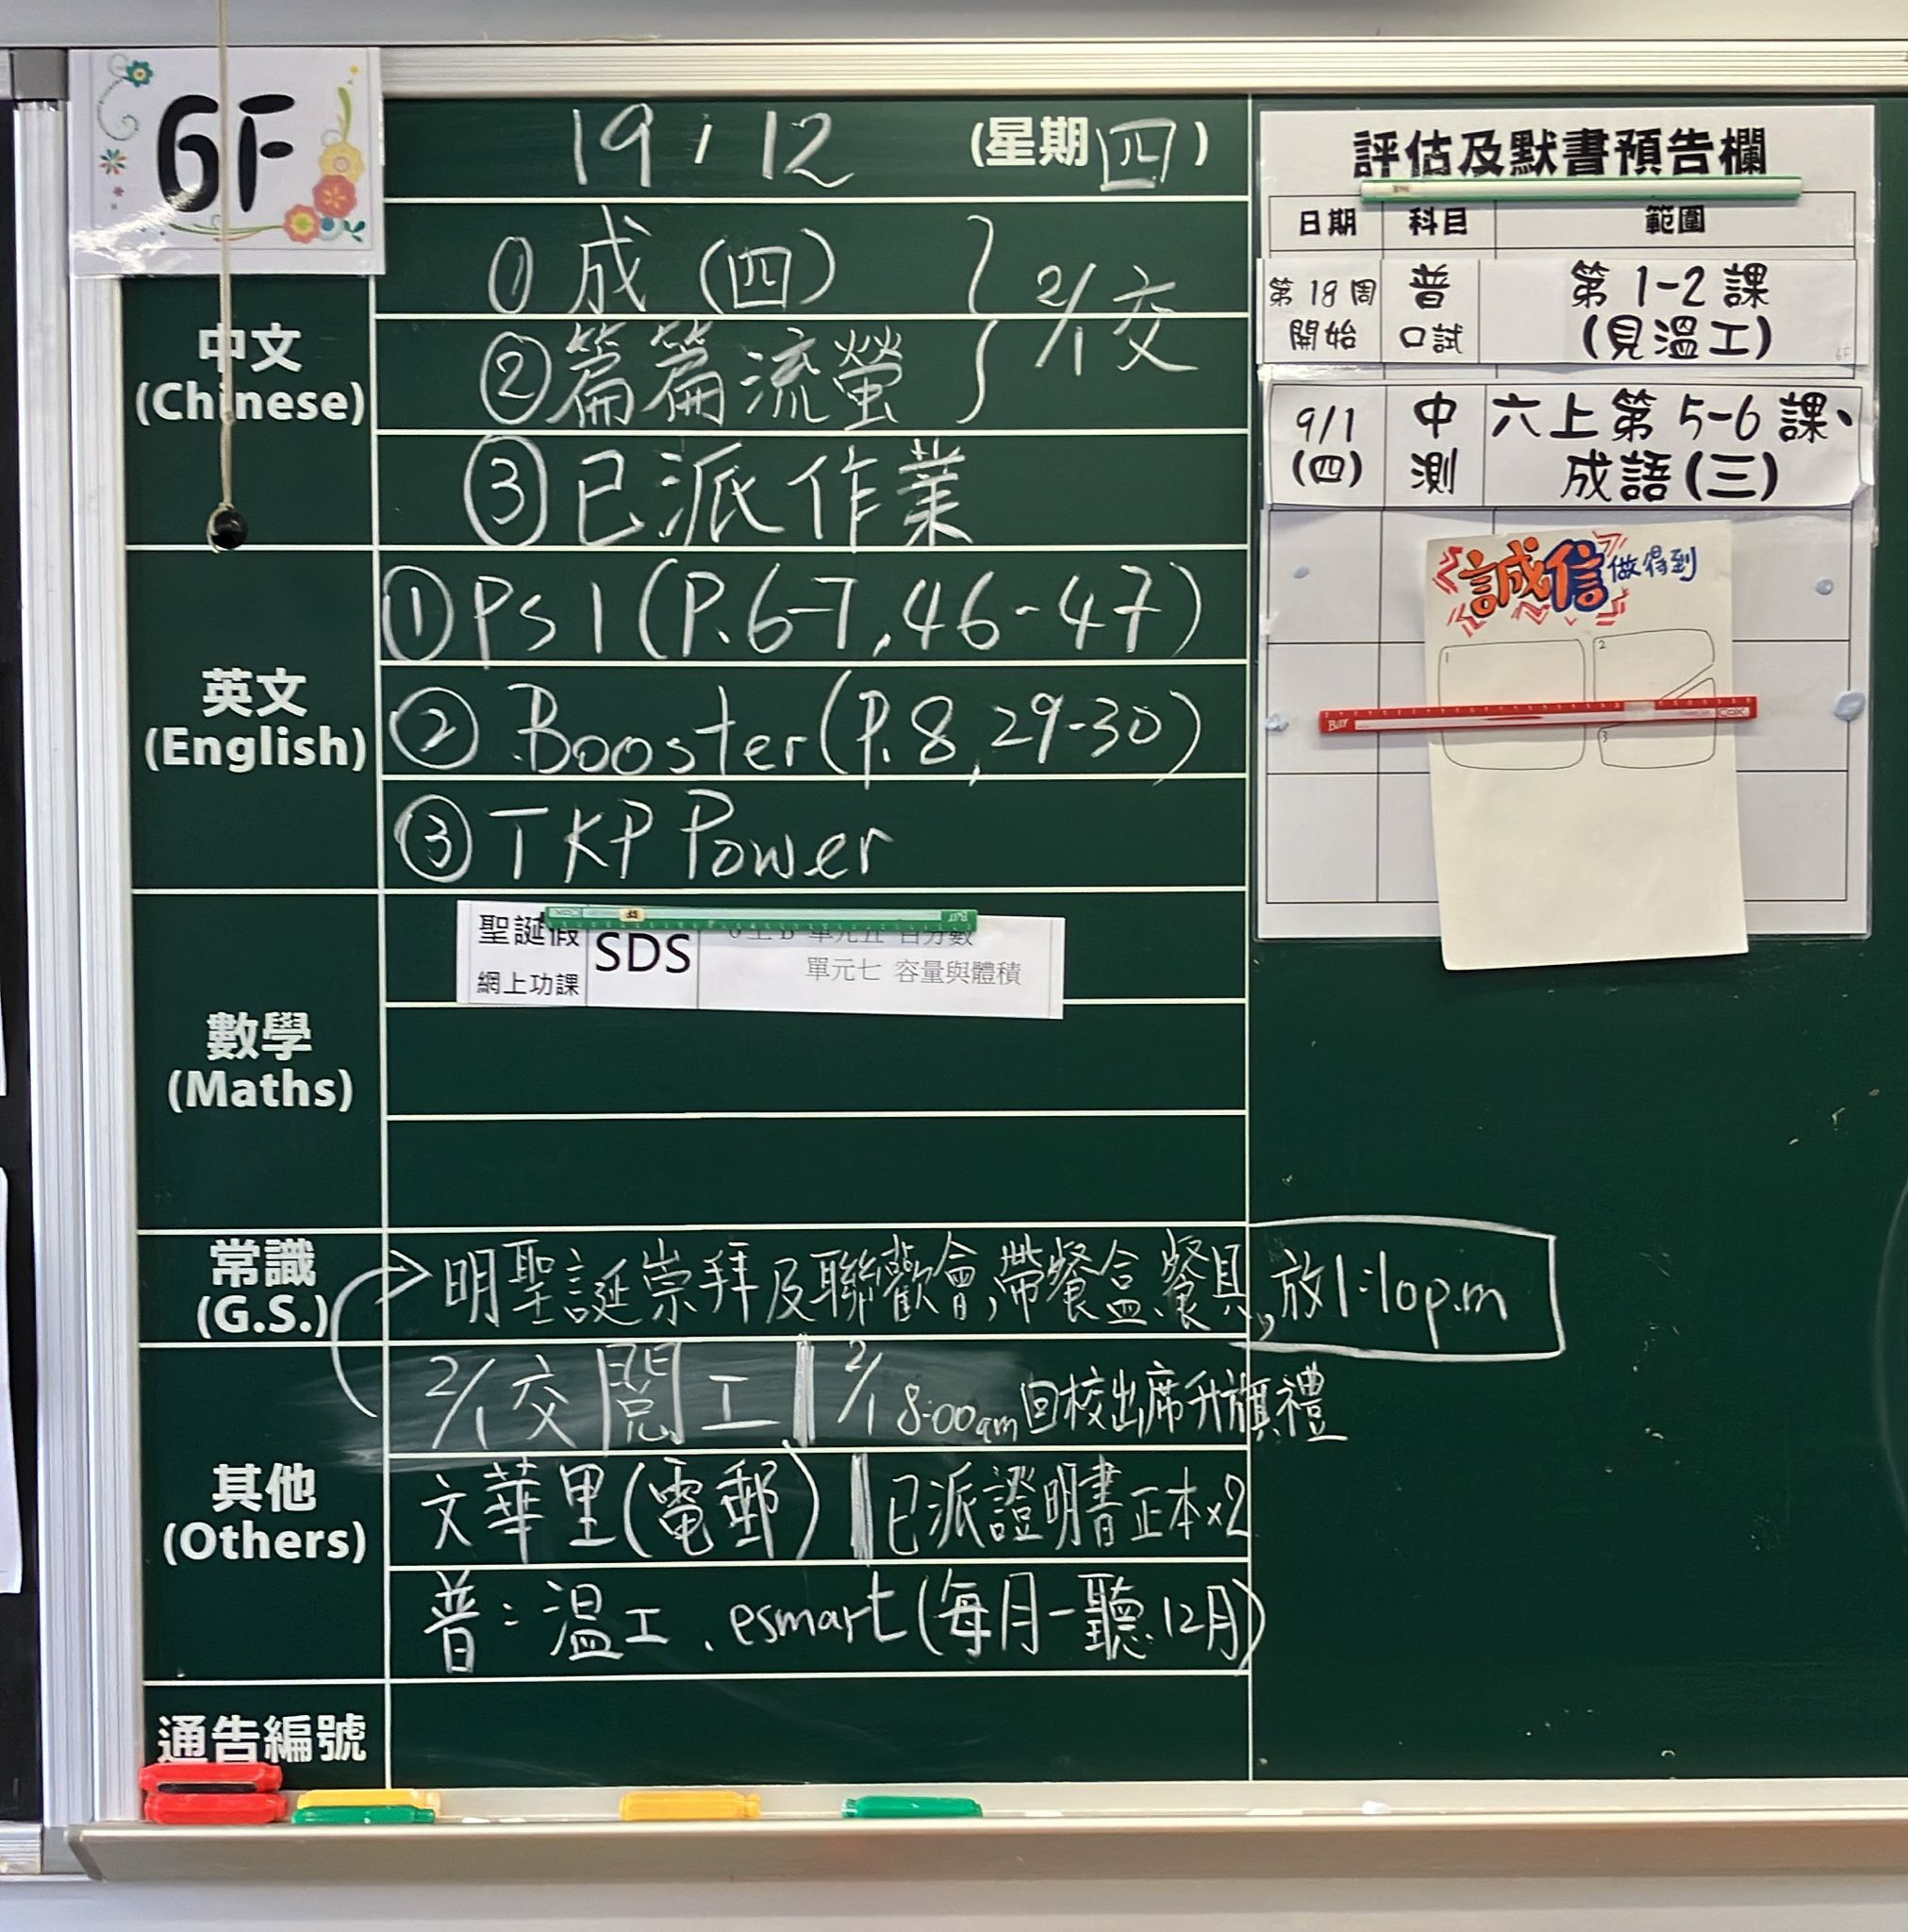 6F
19 / 12 (星期四)
中文
(Chinese)
① 成 (四)
② 篇篇流螢
2/1交
③ 已派作業
英文
(English)
① PS 1 (P.6-7, 46-47)
② Booster (P.8, 29-30)
③ TKP Power
數學
(Maths)
聖誕假 SDS 單元五 百分數
網上功課 單元七 容量與體積
常識
(G.S.)
明聖誕崇拜及聯歡會,帶餐盒、餐具, 放1:10p.m
其他
(Others)
2/1 交閱工 2/1 8:00am回校出席升旗禮
文華里(電郵) 已派證明書正本x2
普：溫工、esmart(每月一聽.12月)
通告編號
評估及默書預告欄
日期 科目 範圍
第18周開始 普口試 第1-2課(見溫工)
6F
9/1(四) 中測 六上第5-6課、成語(三)
誠信做得到
1
2
3